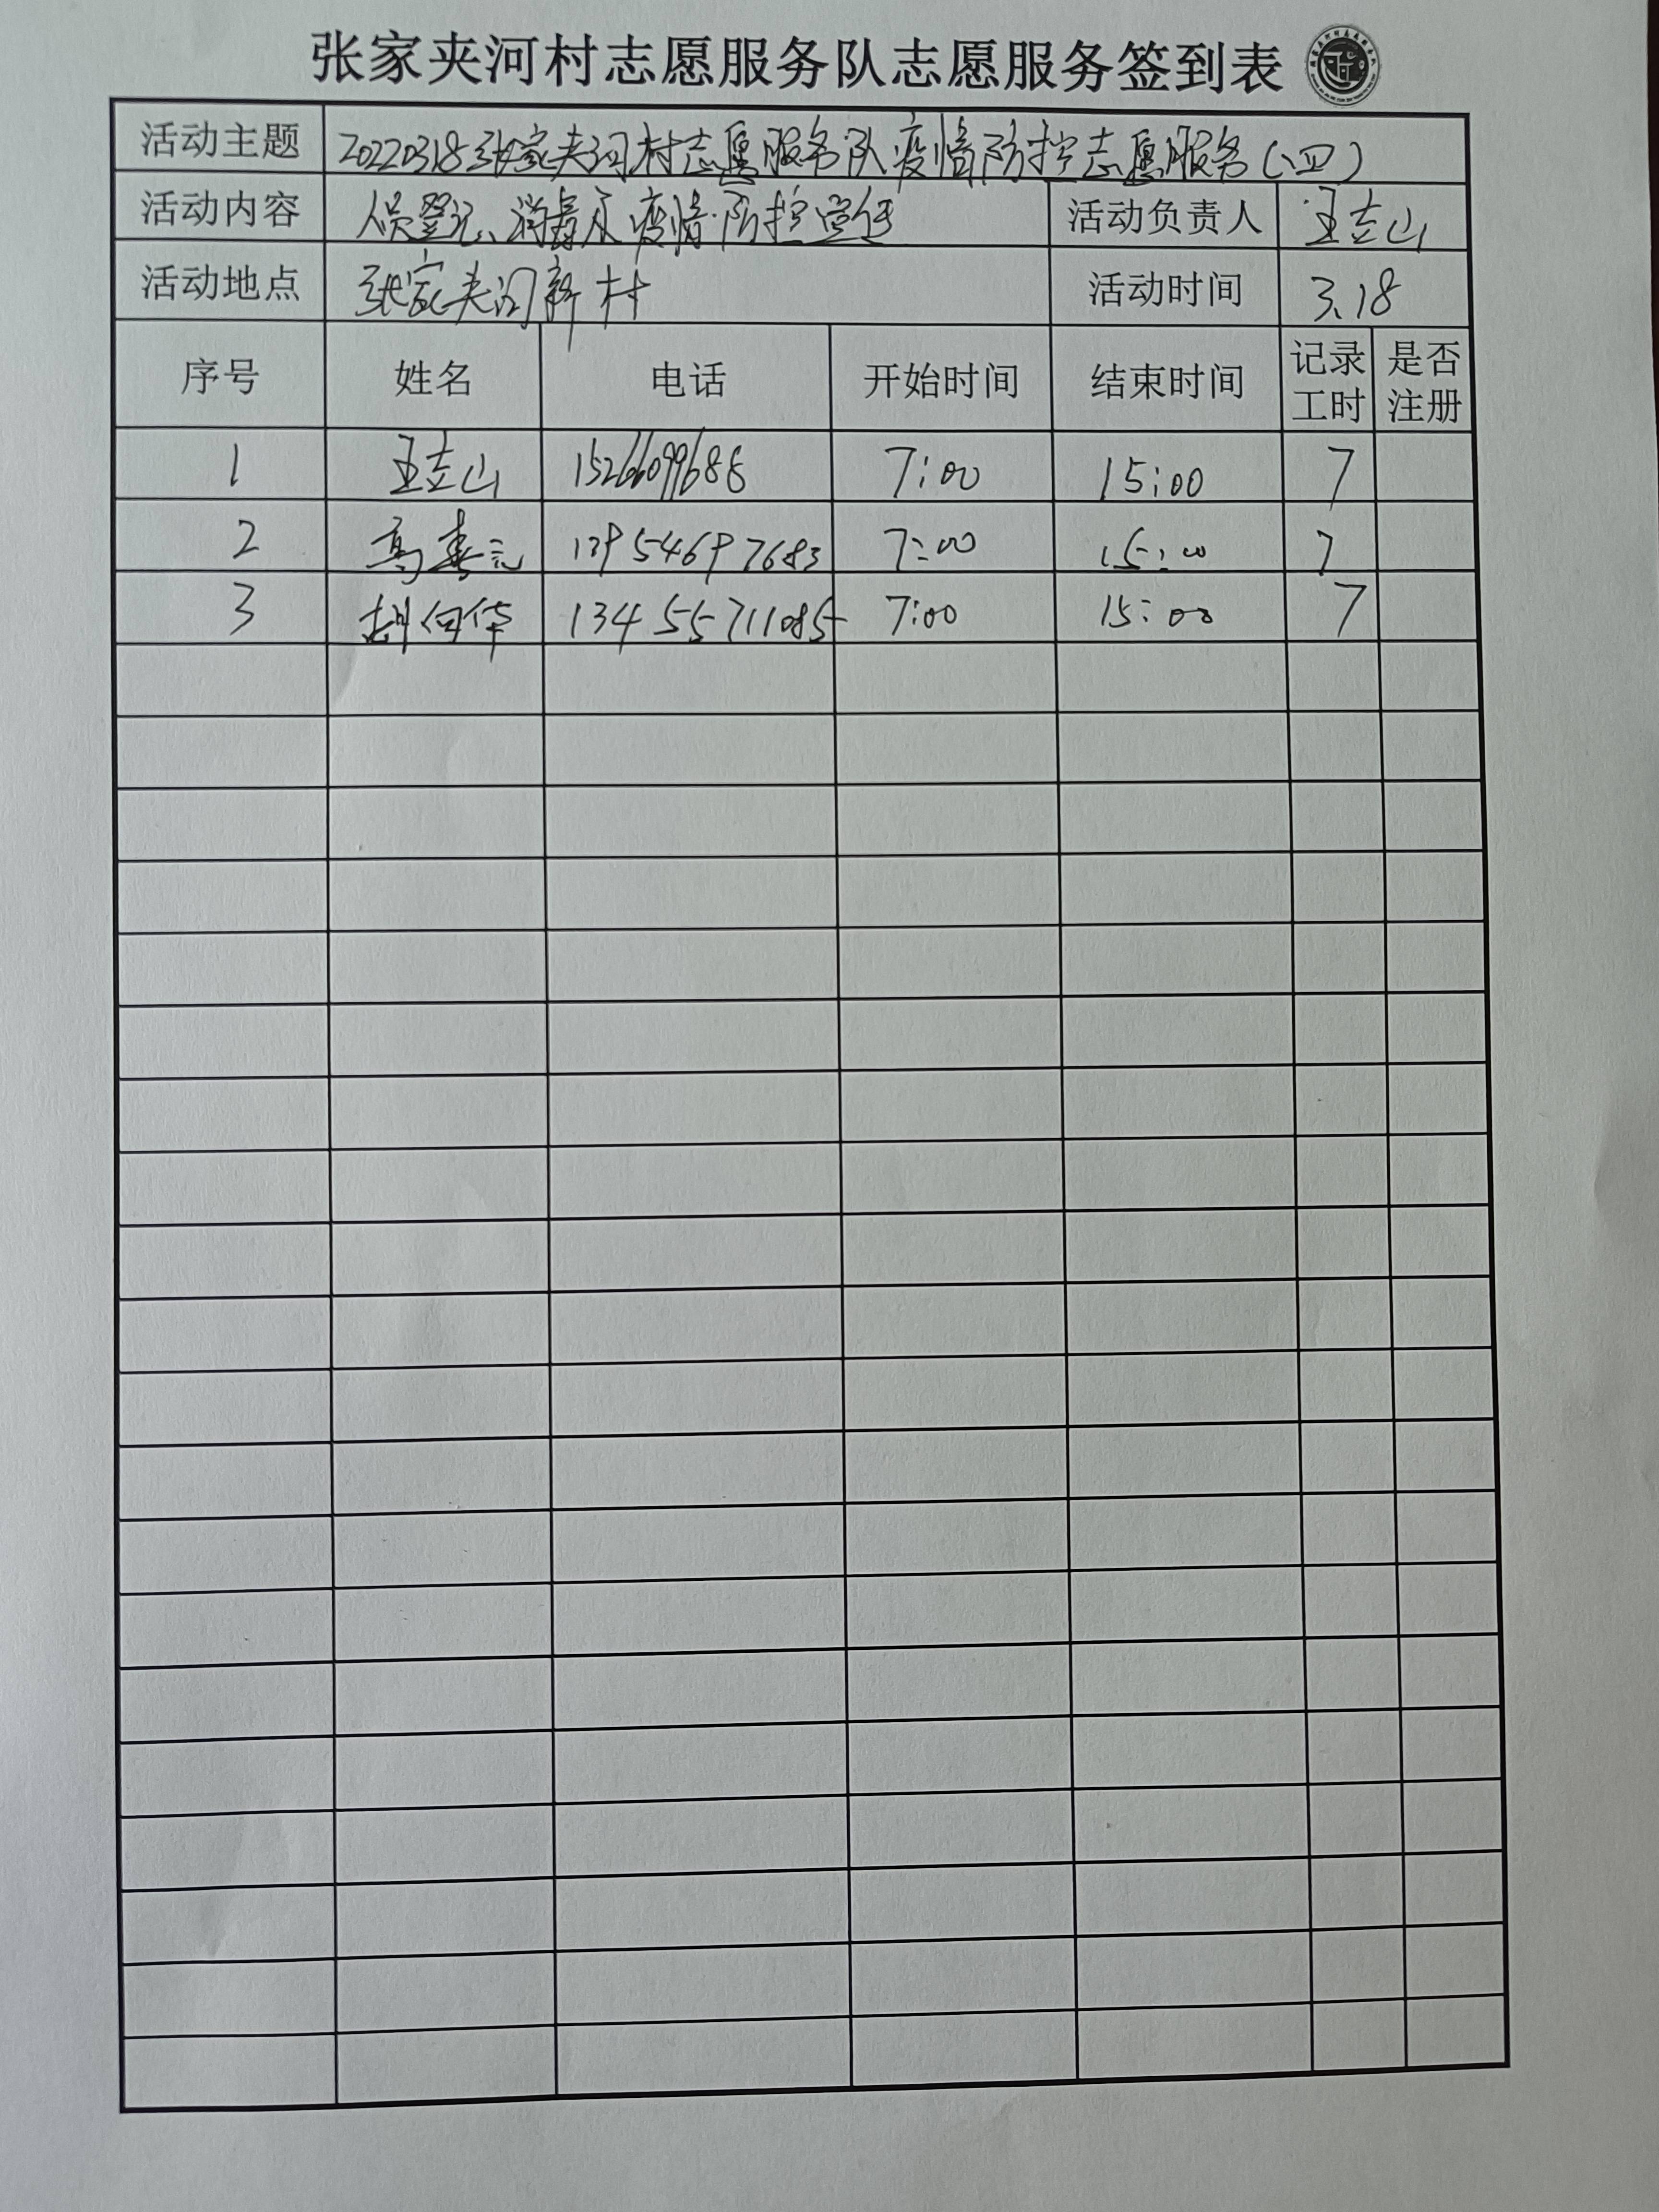 张家夹河村志愿服务队志愿服务签到表
活动主题 20220318张家夹河村志愿服务队疫情防控志愿服务(四)
活动内容 人员登记、消毒及疫情防控宣传 活动负责人 王立山
活动地点 张家夹河新村 活动时间 3.18
序号 姓名 电话 开始时间 结束时间 记录工时 是否注册
1 王立山 15266099688 7:00 15:00 7
2 高春 13954697683 7:00 15:00 7
3 胡向华 13455711085 7:00 15:00 7